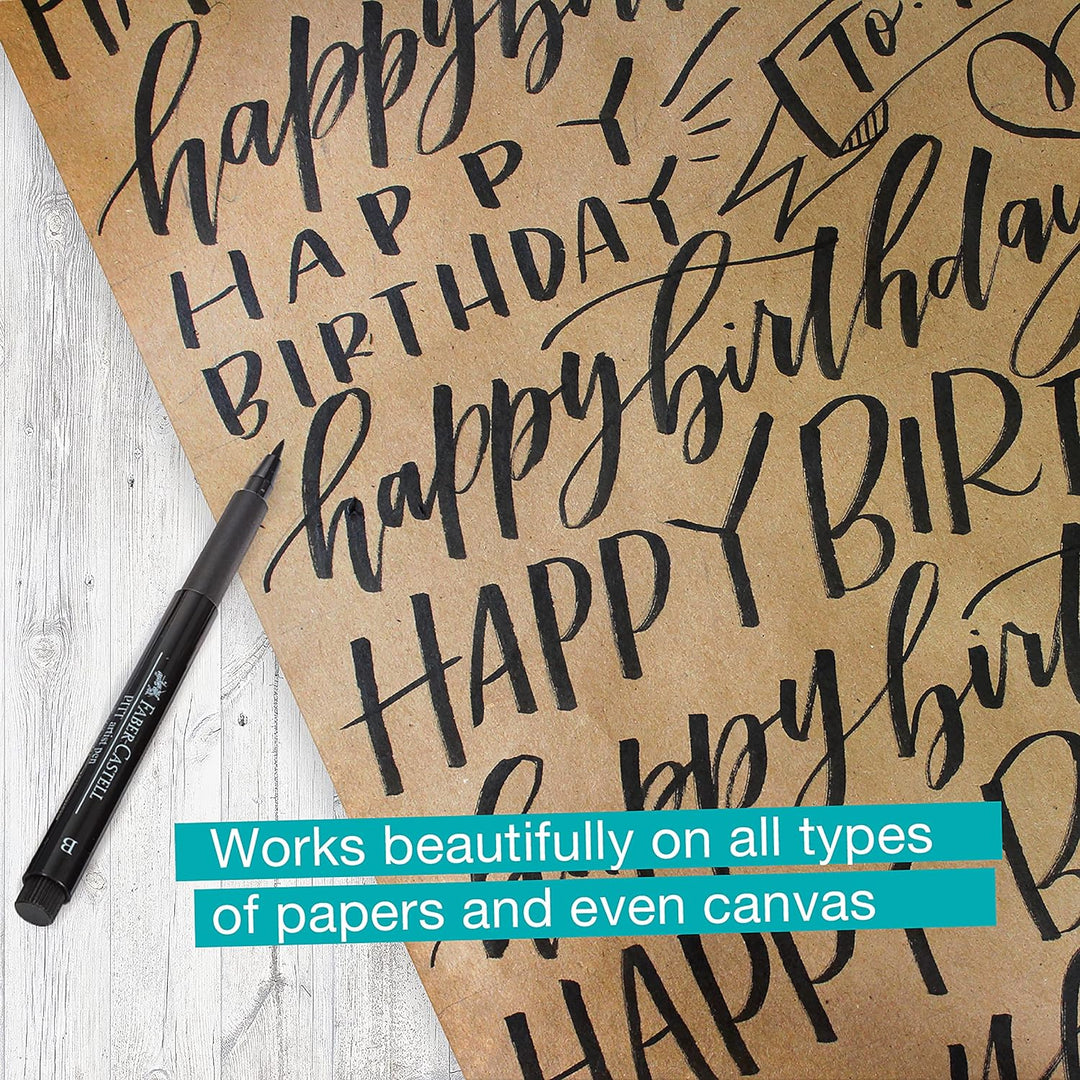 happy bi
To:
HAPPY
BIRTHDAY
happy birthday
HAPPY BIR
happy birt
HAPPY B
Works beautifully on all types
of papers and even canvas
FABER-CASTELL
PITT artist pen
B